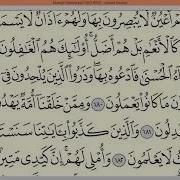 أَعْيُنٌ لَّا يُبْصِرُونَ بِهَا وَلَهُمْ ءَاذَانٌ لَّا يَسْمَ
كَٱلْأَنْعَـٰمِ بَلْ هُمْ أَضَلُّ أُو۟لَـٰٓئِكَ هُمُ ٱلْغَـٰفِلُونَ
ٱلْحُسْنَىٰ فَٱدْعُوهُ بِهَا وَذَرُوا۟ ٱلَّذِينَ يُلْحِدُونَ فِىٓ
نَ مَا كَانُوا۟ يَعْمَلُونَ ١٨٠ وَمِمَّنْ خَلَقْنَآ أُمَّةٌ يَهْدُو
ونَ ١٨١ وَٱلَّذِينَ كَذَّبُوا۟ بِـَٔايَـٰتِنَا سَنَسْتَ
لَا يَعْلَمُونَ ١٨٢ وَأُمْلِى لَهُمْ إِنَّ كَيْدِى مَتِينٌ